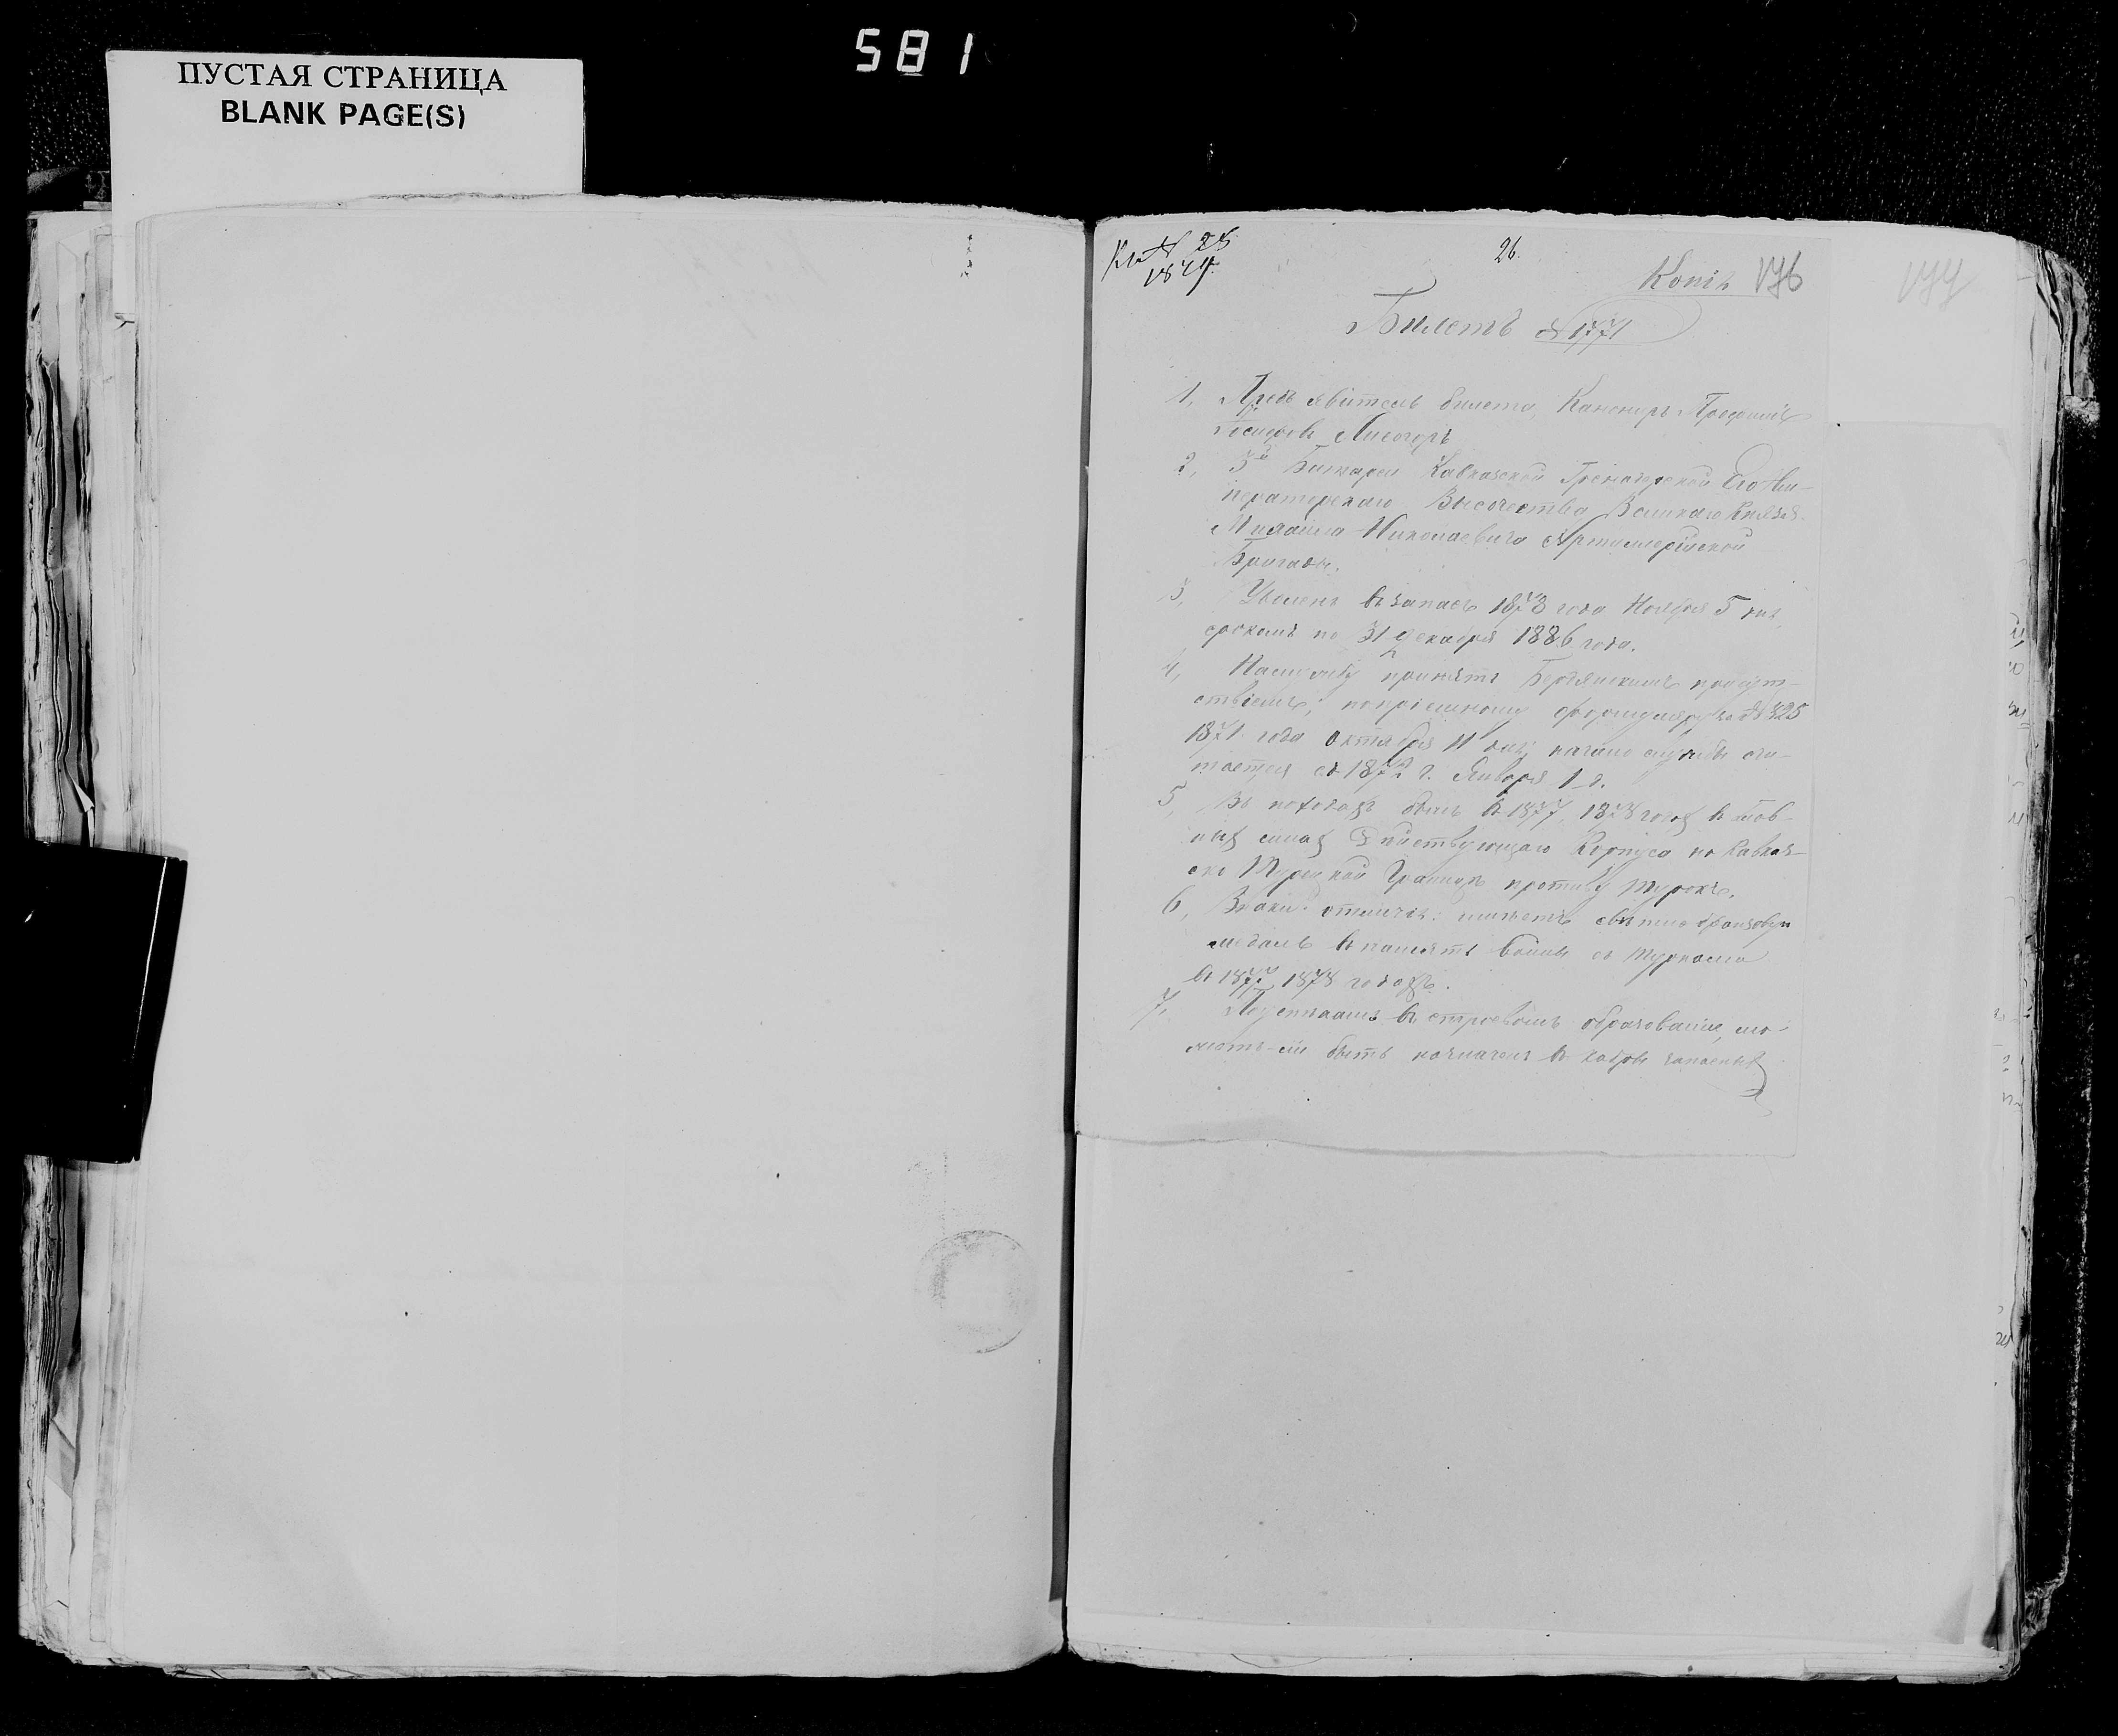 581
ПУСТАЯ СТРАНИЦА
BLANK PAGE(S)
26.
Копія 176
177
Билетъ № 1771
1, Предъявитель билета, Канониръ Трофимъ
Лисогоръ
2, 3й Батареи Кавказской Гренадерской Его Им-
ператорскаго Высочества Великаго Князя
Михаила Николаевича Артиллерійской
Бригады.
3, Уволенъ въ запасъ 1878 года Ноября 5 дня,
срокомъ по 31 Декабря 1886 года.
4, На службу принятъ Бердянскимъ присут-
ствіемъ, по пріемному формуляру за № 325
1871 года Октября 11 дня; начало службы счи-
тается съ 1872 г. Января 1 д.
5, Въ походахъ былъ въ 1877, 1878 годах въ глав-
ных силах Дѣйствующаго Корпуса на Кавказ-
ско Турецкой Границѣ противу турокъ.
6, Знаки отличія: имѣетъ свѣтло бронзовую
медаль въ память войны съ турками
въ 1877, 1878 годахъ.
7, въ строевомъ образованіи, мо-
жетъ-ли быть назначенъ въ кадры запасных